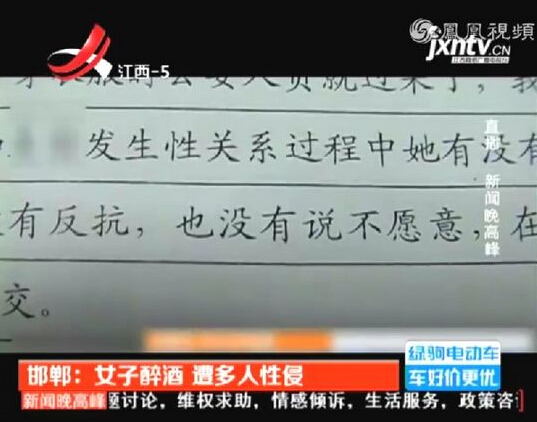 鳳凰視頻
jxntv.CN
江西-5
江西网络广播电视台
公安人员就过来了，我
发生性关系过程中她有没有
有反抗，也没有说不愿意，在
交。
直播 新闻晚高峰
邯郸：女子醉酒 遭多人性侵
绿驹电动车
车好价更优
新闻晚高峰
题讨论，维权求助，情感倾诉，生活服务，政策咨